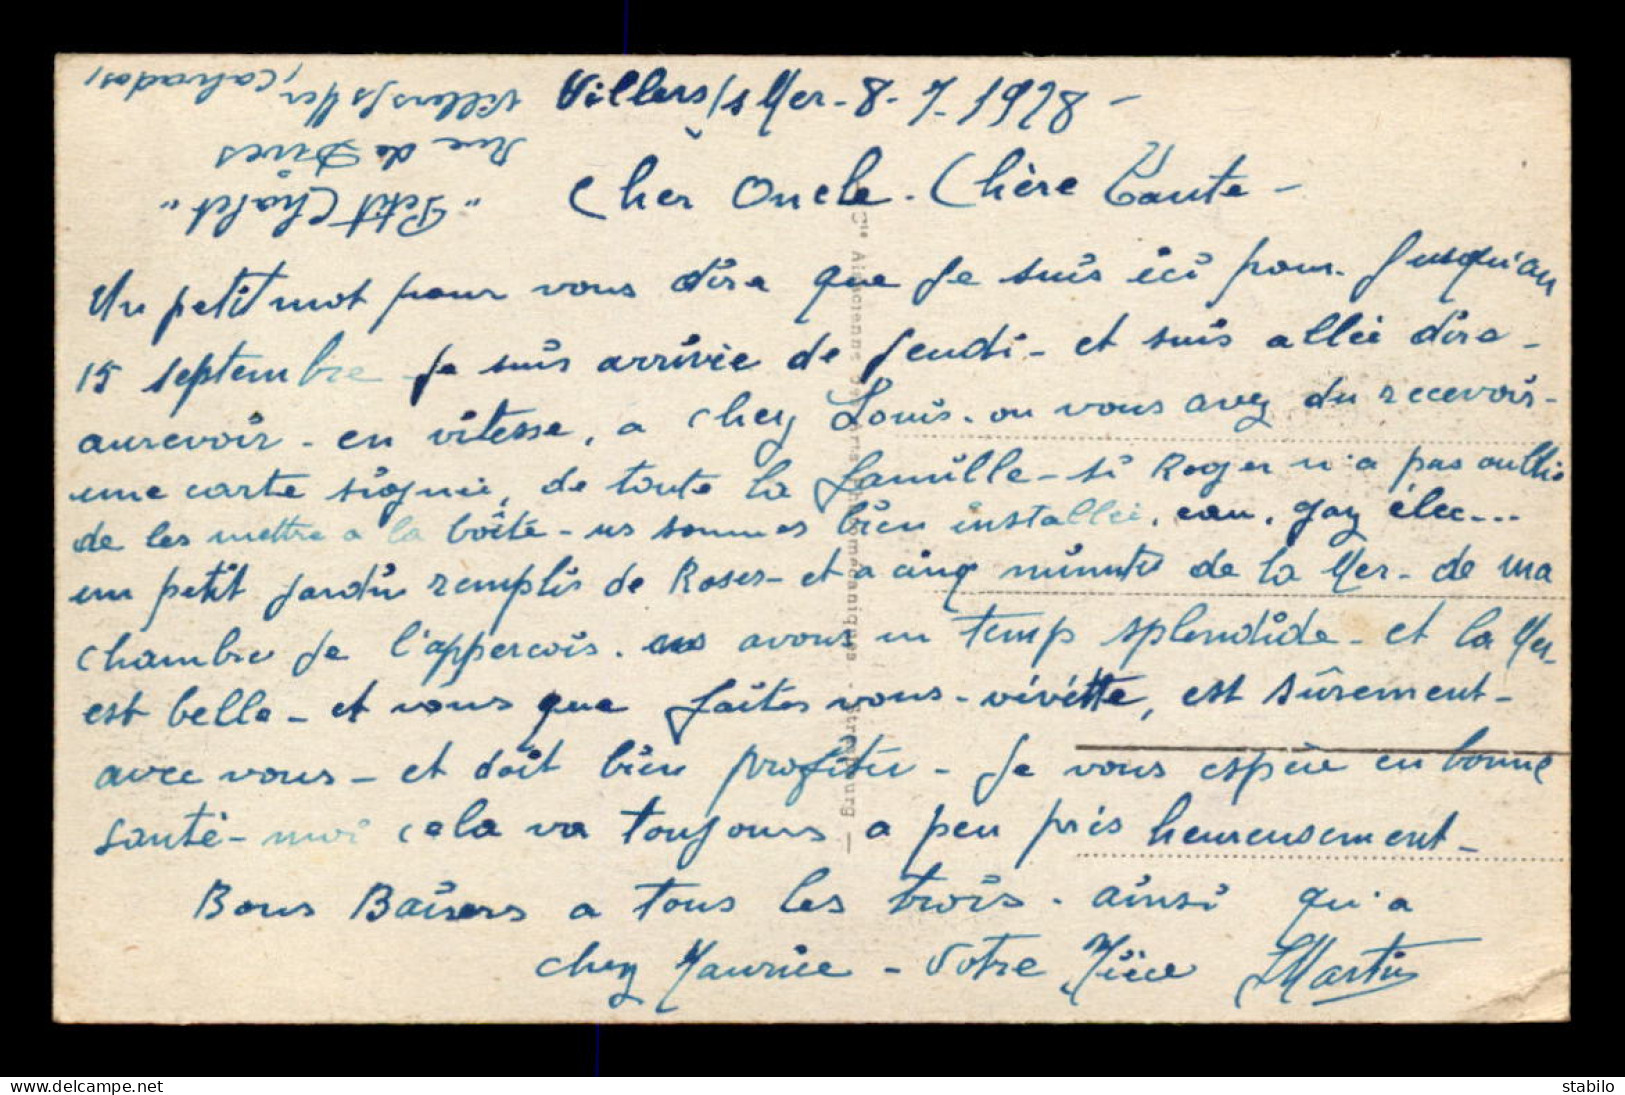 Villers/s Mer - 8 - 7 - 1928 -
"Petit Châlet"
Rue de Dives
Villers/s Mer
(Calvados)
Cher Oncle - Chère Tante -
Un petit mot pour vous dire que je suis ici pour - jusqu'au
15 septembre je suis arrivée de jeudi - et suis allée dire -
aurevoir - en vitesse, a chez Louis - ou vous avez du recevoir -
une carte signée, de toute la famille - si Roger n'a pas oublié
de les mettre a la boîte - ns sommes bien installée, eau, gaz élec...
un petit jardin remplis de Roses - et a cinq minutes de la Mer - de ma
chambre je l'apperçois. ns avons un temp splendide - et la Mer
est belle - et vous que faites vous - vivette, est sûrement -
avec vous - et doit bien profiter - Je vous espère en bonne
santé - moi cela va toujours a peu près heureusement -
Bons Baisers a tous les trois - ainsi qu'a
chez Maurice - Votre Nièce LMartin
Cie Alsacienne des Arts Photomécaniques - Strasbourg —
delcampe.net
stabilo